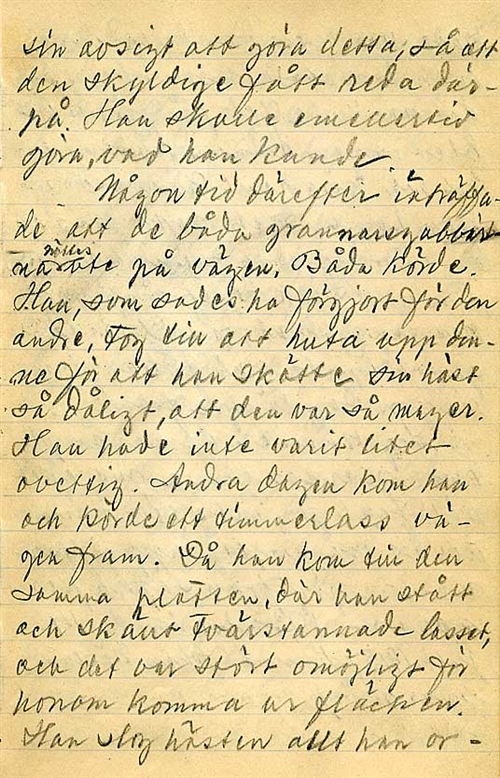 sin avsigt att göra detta, så att
den skyldige fått reda där-
på. Han skulle emellertid
göra, vad han kunde
Någon tid därefter inträffa-
de att de båda grannarsgubbar-
na möttes på vägen. Båda körde.
Han, som sades ha förgjort för den
andre, tog till att huta upp den-
ne för att han skötte sin häst
så dåligt, att den var så mager.
Han hade inte varit litet
ovettig. Andra dagen kom han
och körde ett timmerlass vä-
gen fram. Då han kom till den
samma platsen, där han stått
och skänt tvärstannade lasset,
och det var stört omöjligt för
honom komma ur fläcken.
Han slog hästen allt han or-